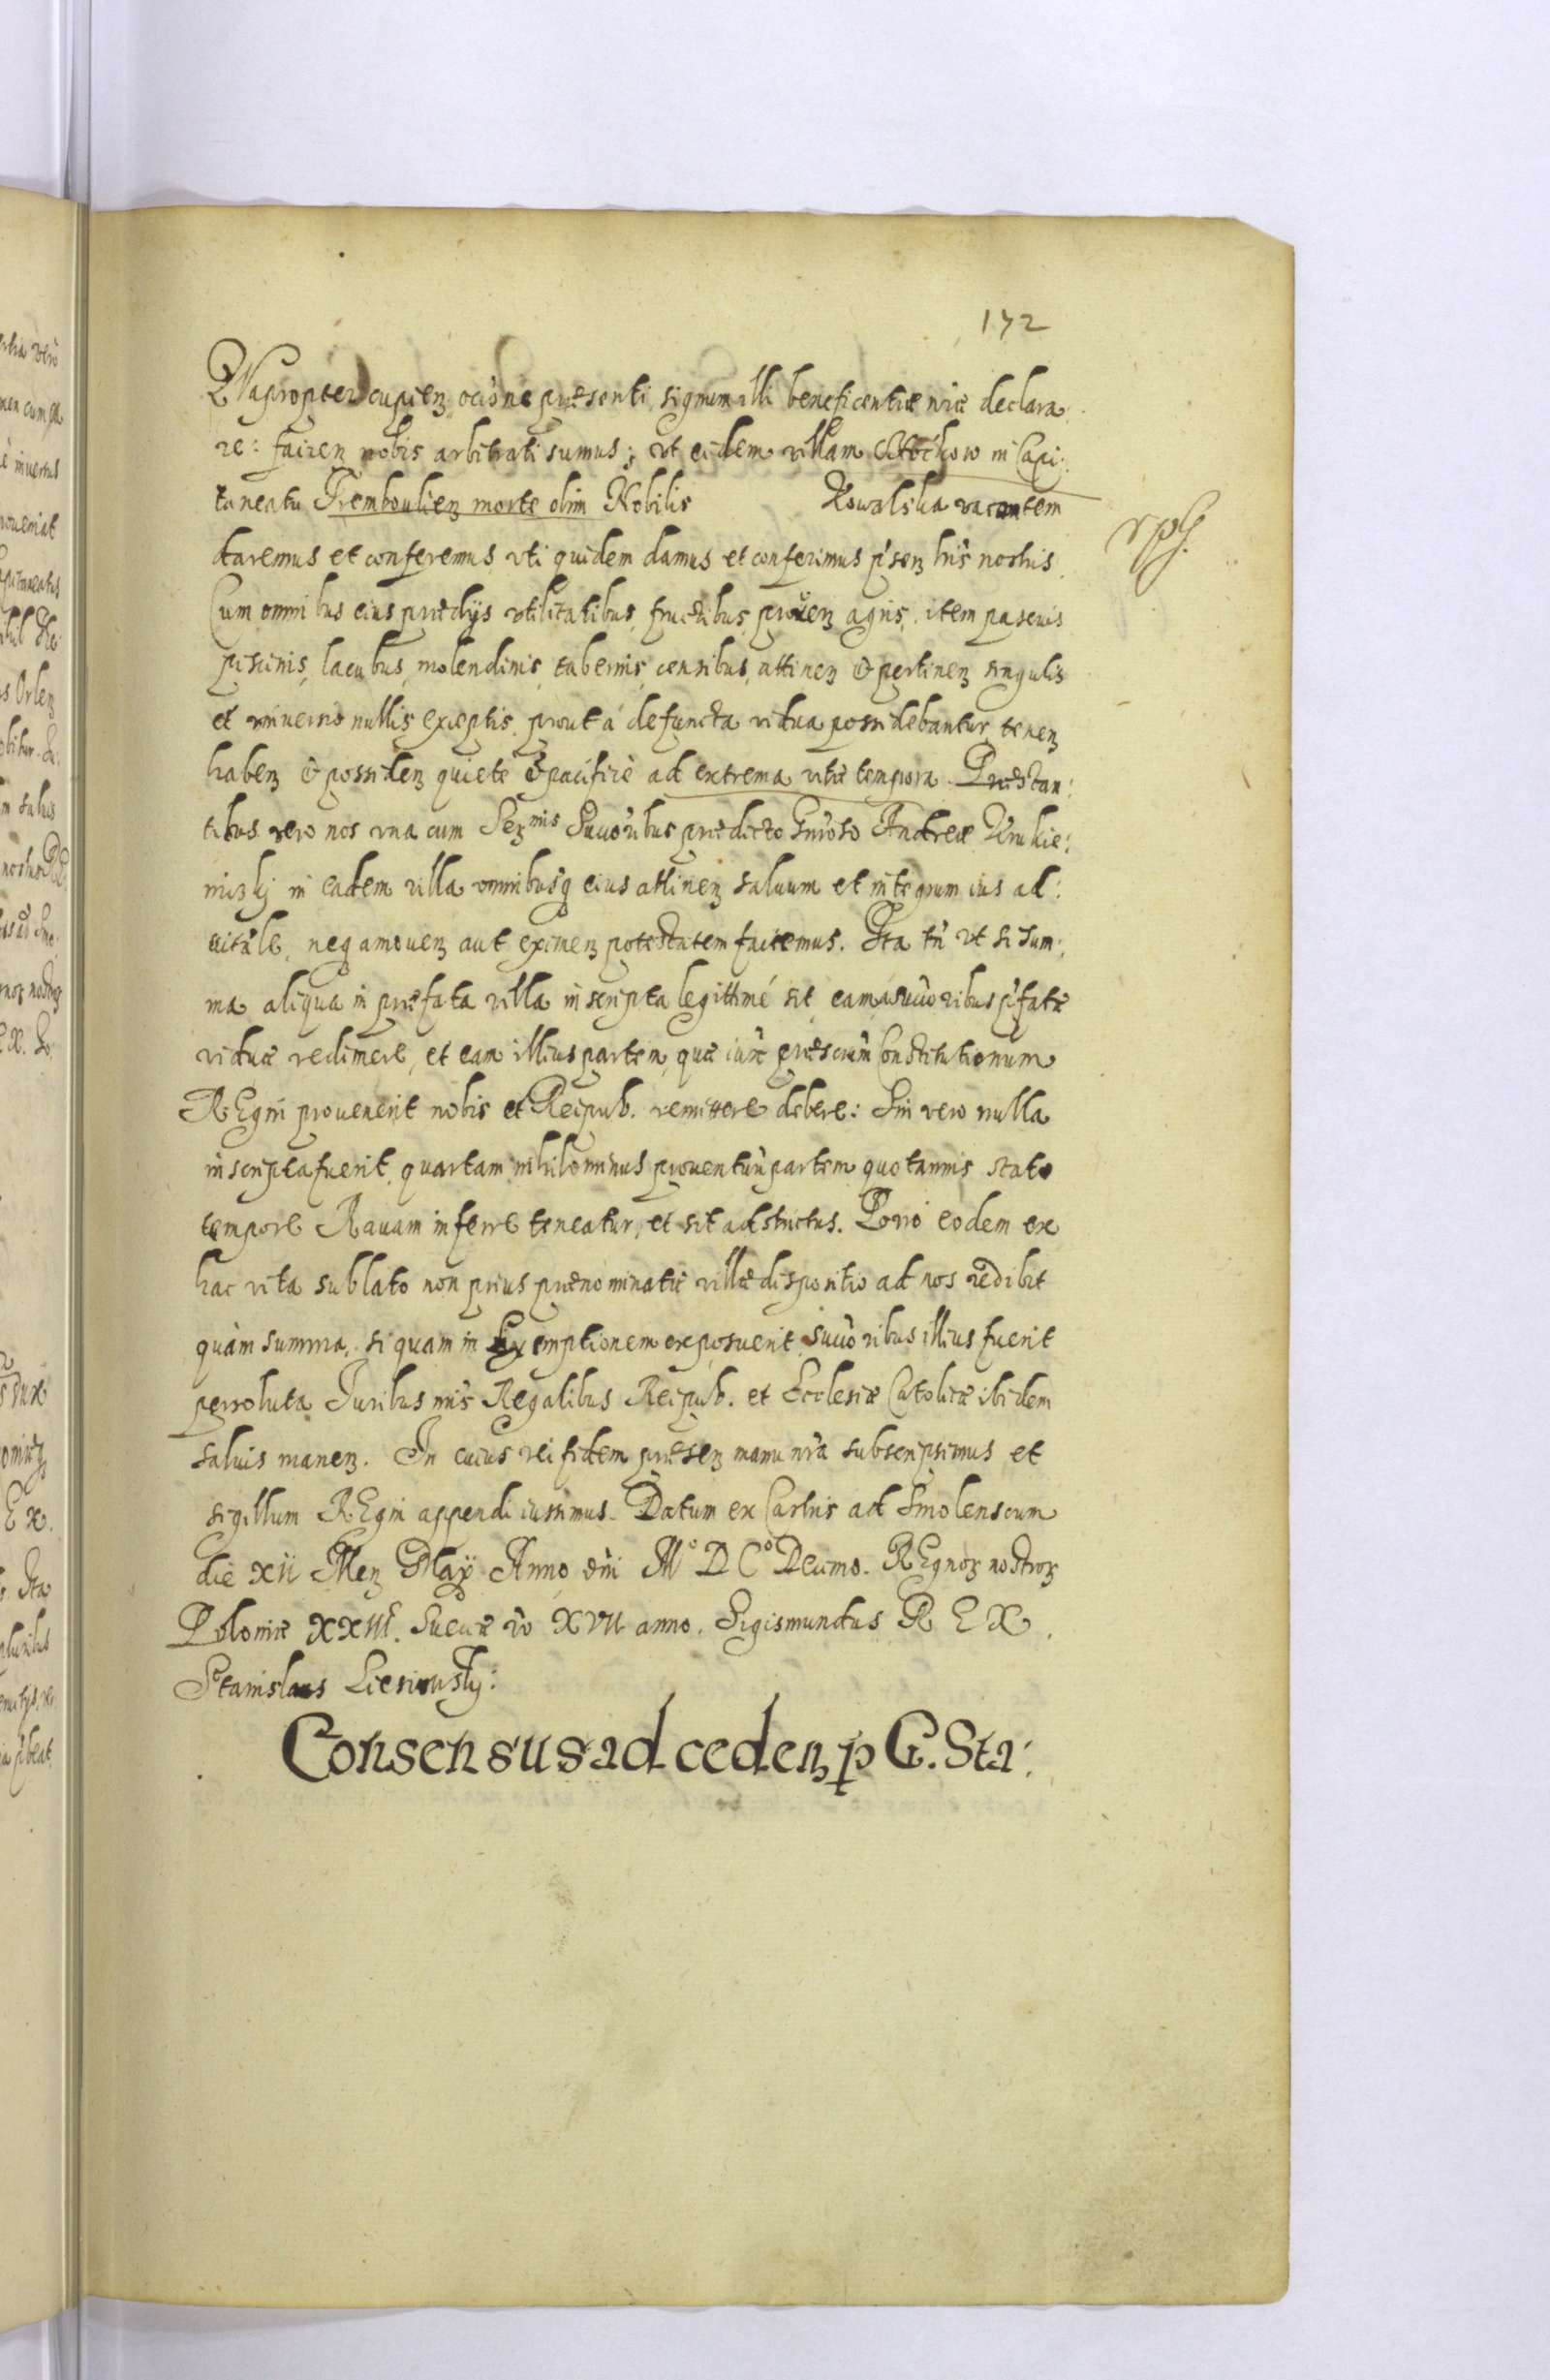 172
Quapropter cupien occõne præsenti, signum illi beneficentiæ nræ declara
re: facien nobis arbitrati sumus; vt eidem villam in Capi:
taneatu Tremboulien morte olim Nobilis Kowalska vacantem
daremus et conferemus, vti quidem damus et conferimus p̃sen lrĩs nostris.
Cum omnibus eius prædijs vtilitatibus, fructibus, prouen agris, item pascuis
piscinis, lacubus, molendinis, tabernis, censibus, attinen & pertinen singulis
et vniuersis nullis exceptis, prout á defuncta vidua possidebantur, tenen
haben & possiden quieté & pacificé ad extrema vitæ tempora. Præstan:
tibus vero nos vna cum Ser:mis Succoribus prædicto Gnroso Andreæ
in eadem villa omnibusq eius attinen saluum et integrum ius ad:
uitale, neq amouen aut eximen potestatem faciemus. Ita tñ vt si sum:
ma aliqua in præfata villa inscripta legittimé sit, eam a succoribus p̃fatæ
viduæ redimere, et eam illius partem, quæ iure præscriũ Constitutionum
REgni prouenerit nobis et Reipub. remittere debere: Sin vero nulla
inscripta fuerit, quartam nihilominus prouentuũ partem quotannis stato
tempore Rauam inferre teneatur, et sit adstrictus. Porró eodem ex
hac vita sublato non prius prænominatæ villæ dispositio ad nos redibit
quàm summa, si quam in Exemptionem exposuerit, succoribus illius fuerit
persoluta. Juribus nris Regalibus Reipub. et Ecclesiæ Catolicæ ibidem
saluis manen. In cuius rei fidem præsen manu nrã subscripsimus et
sigillum REgni appendi iussimus. Datum ex Castris ad Smolenscum
die XII Men Maÿ Anno dñi M° D C° Decimo. REgnor nostror
Poloniæ XXIII. Sueciæ vo XVII anno. Sigismundus R E X.
Stanislaus
Consensus ad ceden p G. Sta: